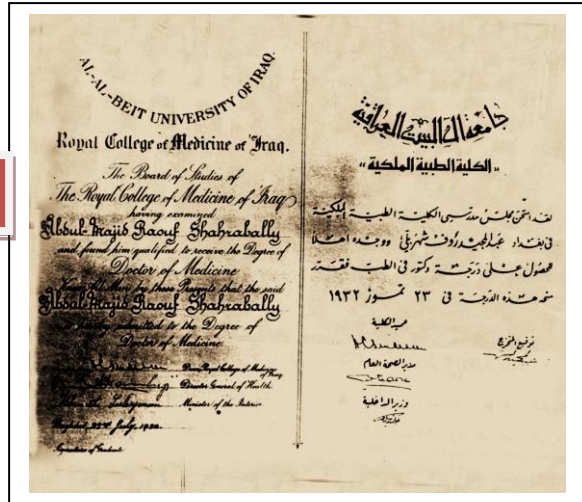 AL-AL-BEIT UNIVERSITY OF IRAQ.
Royal College of Medicine of Iraq.
The Board of Studies of
The Royal College of Medicine of Iraq
having examined
Abdul-Majid Raouf Shahrabally
and found him qualified to receive the Degree of
Doctor of Medicine
Know All Men by these Presents that the said
Abdul-Majid Raouf Shahrabally
is hereby admitted to the Degree of
Doctor of Medicine
Dean, Royal College of Medicine of Iraq
Director General of Health
Minister of the Interior
Baghdad, 23rd July, 1932.
Signature of Graduate
جامعة آل البيت العراقية
"الكلية الطبية الملكية"
لقد امتحن مجلس مدرسي الكلية الطبية الملكية
في بغداد عبدالمجيد رؤوف شهربلي ووجده اهلاً
لحصول على درجة دكتور في الطب فقرر
منحه هذه الدرجة في ٢٣ تموز ١٩٣٢
عميد الكلية
توقيع المتخرج
مدير الصحة العام
وزير الداخلية